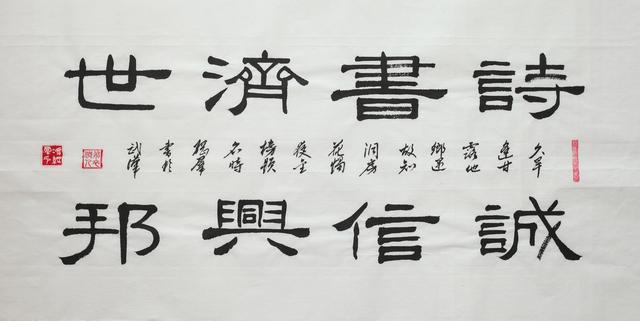 詩書濟世
久旱
逢甘
露他
鄉遇
故知
洞房
花燭
夜金
榜題
名時
書於
武漢
誠信興邦